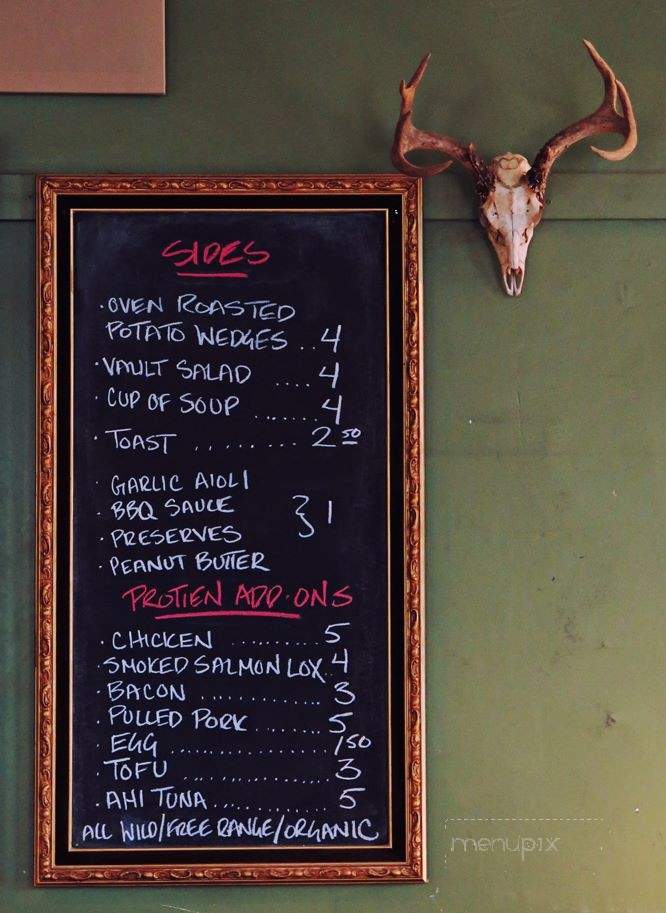 SIDES
· OVEN ROASTED
POTATO WEDGES .. 4
· VAULT SALAD .... 4
· CUP OF SOUP ...... 4
· TOAST ........ 2 50
· GARLIC AIOLI
· BBQ SAUCE } 1
· PRESERVES
· PEANUT BUTTER
PROTIEN ADD·ONS
· CHICKEN .......... 5
· SMOKED SALMON LOX. 4
· BACON ............ 3
· PULLED PORK ....... 5
· EGG ............... 1 50
· TOFU .............. 3
· AHI TUNA ........... 5
ALL WILD/FREE RANGE/ORGANIC
menupix